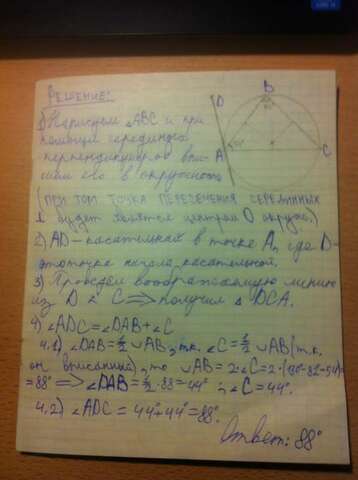 Решение:
1) Нарисуем ∠ABC и при
помощи серединных
перпендикуляров впи-
шем его в окружность
(при том точка пересечения серединных
⊥ будет являться центром O окруж.)
2) AD – касательная в точке A, где D –
точка начала касательной.
3) Проведём воображаемую линию
из D к C ⟹ получим △ DCA.
4) ∠ADC = ∠DAB + ∠C
4.1) ∠DAB = ½ ∪AB, т.к. ∠C = ½ ∪AB (т.к.
он вписанный), то ∪AB = 2·∠C = 2·(180°-82°-54°)=
= 88° ⟹ ∠DAB = ½·88 = 44°; ∠C = 44°.
4.2) ∠ADC = 44°+44° = 88°.
Ответ: 88°
D
B
A
C